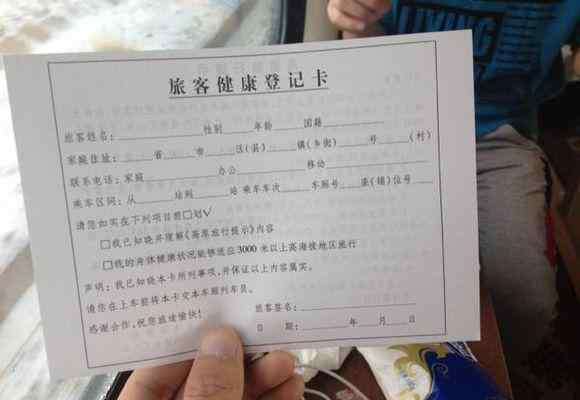 旅客健康登记卡
旅客姓名：______性别____年龄____国籍______
家庭住址：____省____市____区(县)____镇(乡街)____号____(村)
联系电话：家庭______办公______移动______
乘车区间：从____站到____站 乘车车次____车厢号____座(铺)位号____
请您如实在下列项目前□划√
□我已知晓并理解《高原旅行提示》内容
□我的身体健康状况能够适应3000米以上高海拔地区旅行
声明：我已知晓本卡所列事项，并保证以上内容属实。
请您在上车前将本卡交本车厢列车员。
感谢合作，祝您旅途愉快！
旅客签名：______
日 期：____年____月____日
LIVING